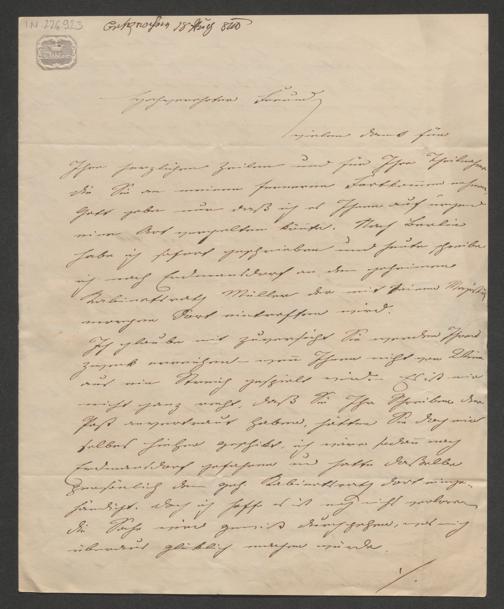 I.N. 226.923
18 Aug 840
Hochverehrter Freund
vielen Dank für
Ihre herzlichen Zeilen und für Ihre Theilnahme
die Sie an meinem ferneren Fortkommen nehmen
Gott gebe nur daß ich es Ihnen auf irgend
eine Art vergelten könte. Nach Berlin
habe ich sofort geschrieben und heute schreibe
ich nach Erdmansdorf an den geheimen
Kabinetsrath Müller der mit Seiner Majestät
morgen dort eintreffen wird.
Ich glaube mit Zuversicht Sie werden Ihren
Zweck erreichen wenn Ihnen nicht von Wien
aus ein Streich gespielt wird. Es ist mir
nicht ganz recht, daß Sie Ihr Schreiben der
Post anvertraut haben, hätten Sie doch
selbes hieher geschikt, ich wäre sodan nach
Erdmansdorf gefahren und hätte dasselbe
persönlich dem geh. Kabinetsrath dort einge-
händigt. Doch ich hoffe es ist noch nichts verloren
die Sache wird gewiß durchgehen, was mich
überaus glüklich machen würde.
./.